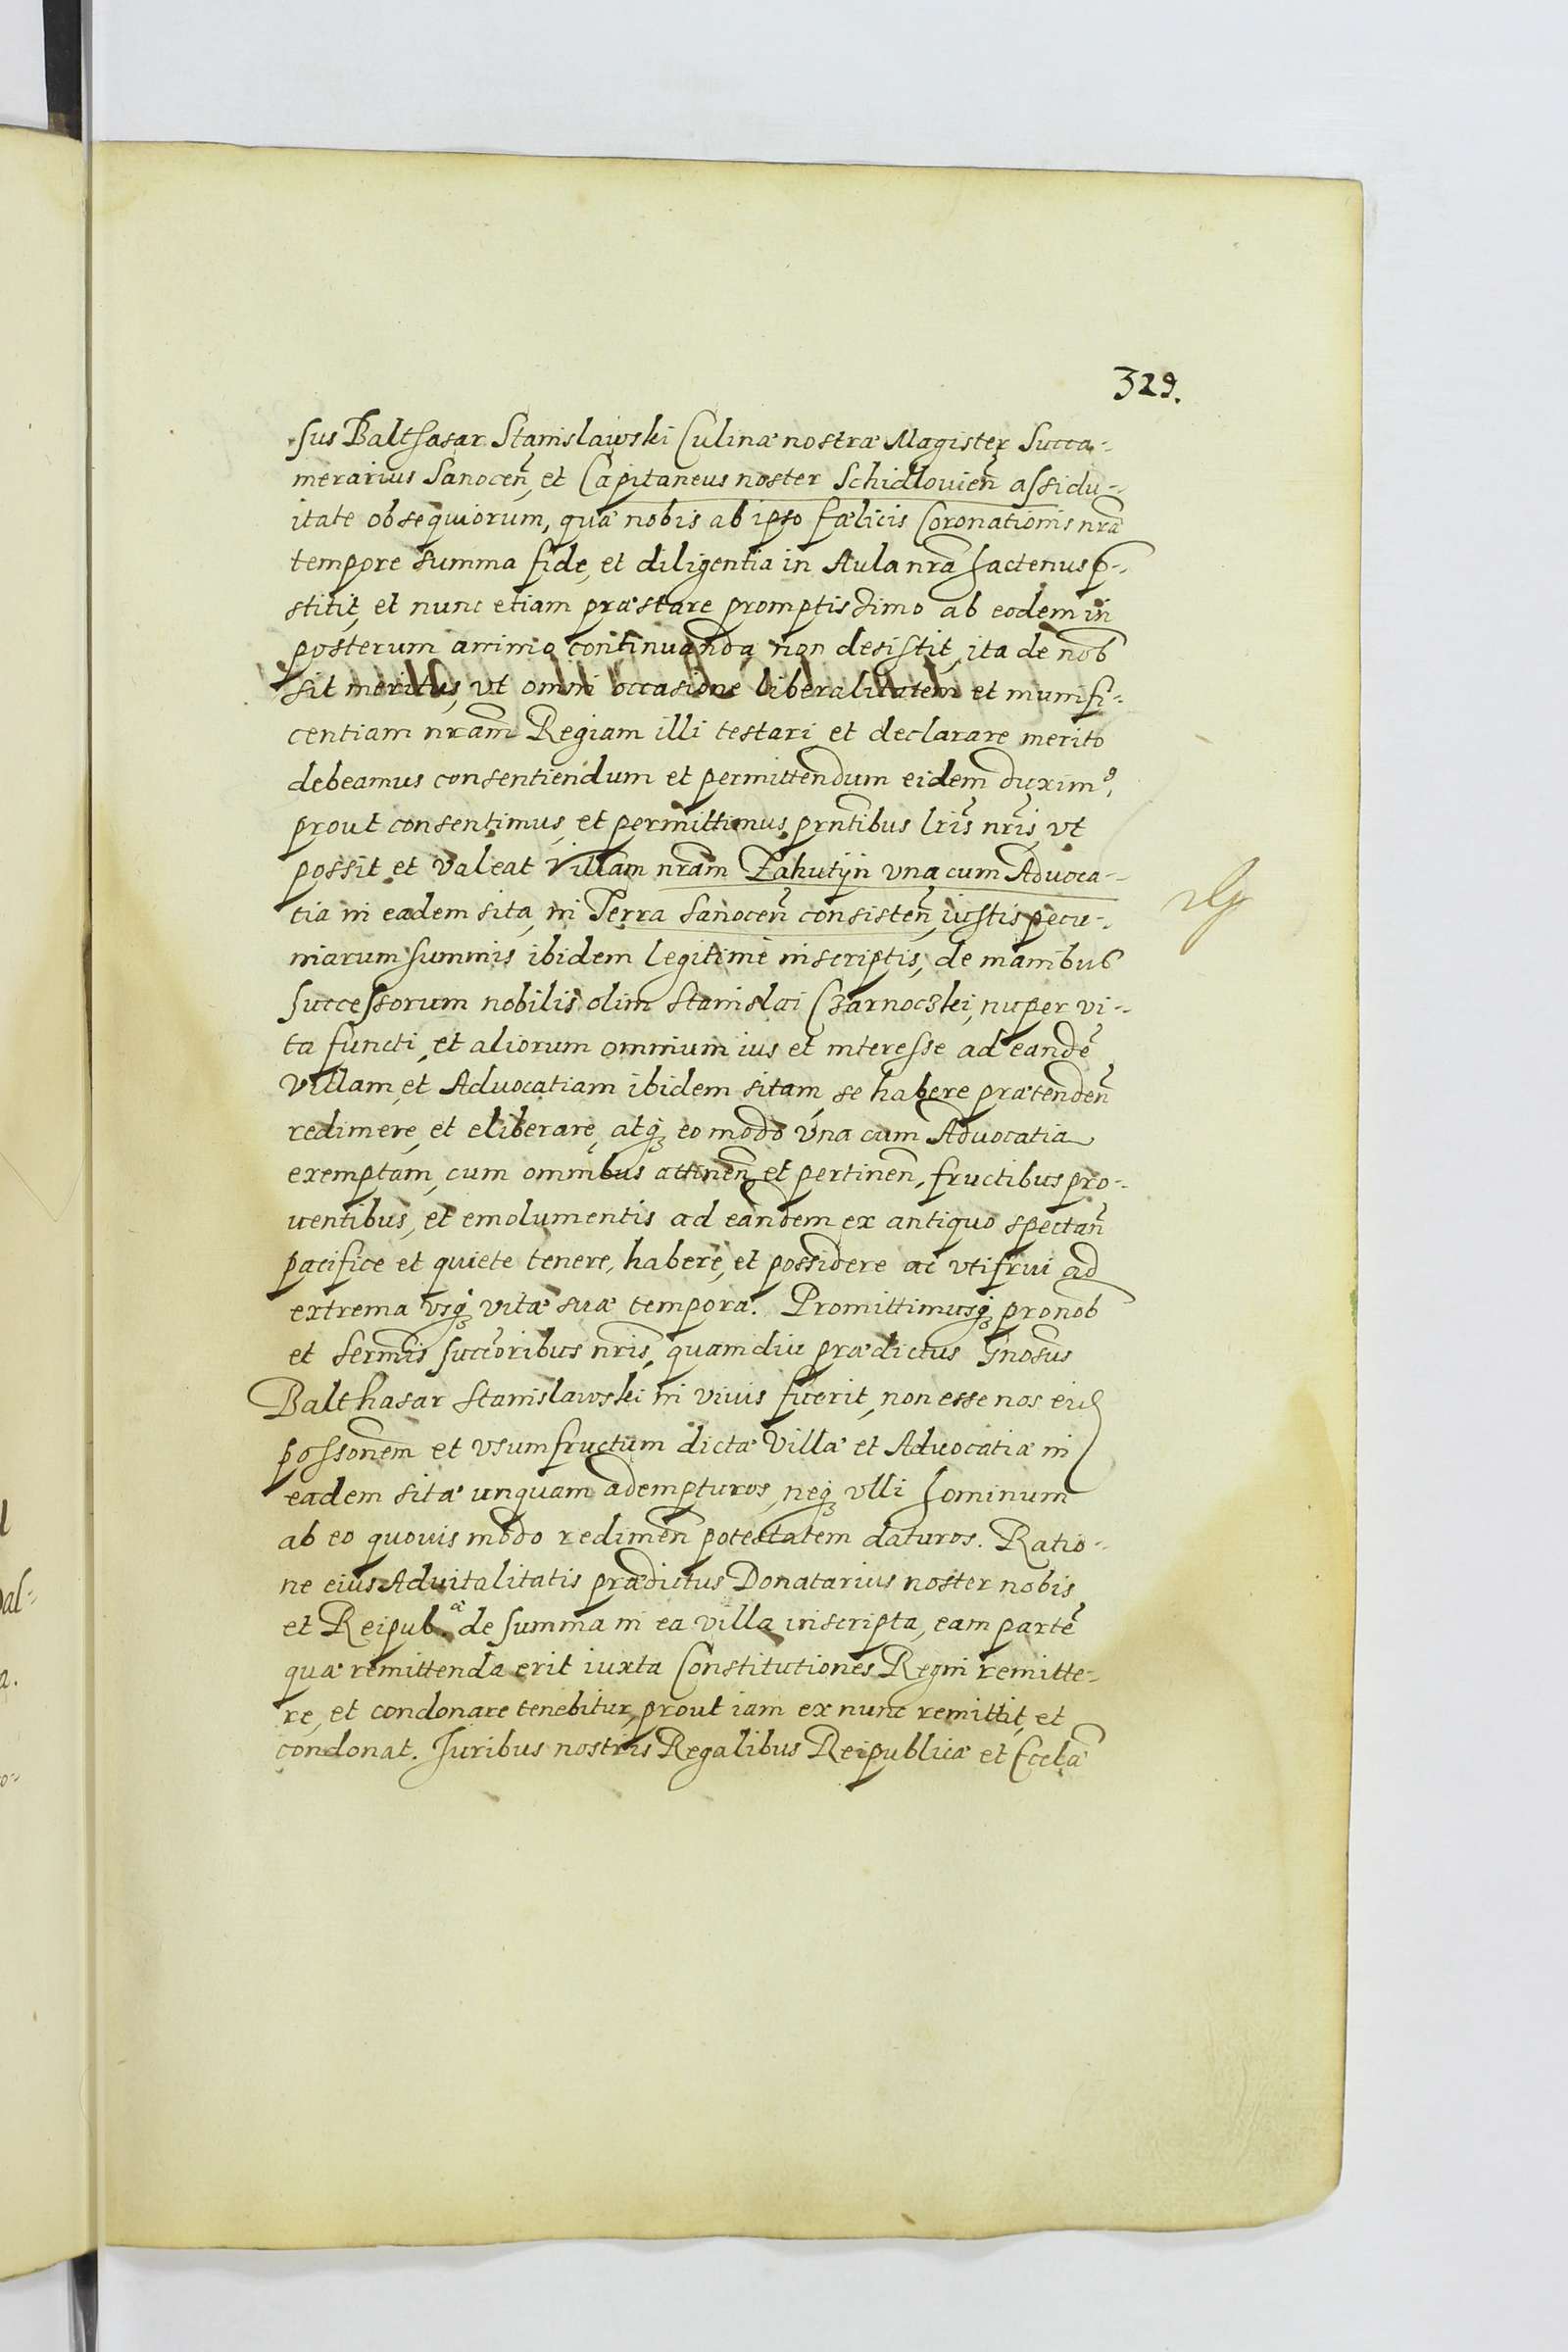 329.
sus Balthasar Stanislawski Culinæ nostræ Magister Succa-
merarius Sanocen̄, et Capitaneus noster Schidlouien̄ assidu-
itate obsequiorum, quæ nobis ab ipso fælicis Coronationis nr̄æ
tempore summa fide, et diligentia in Aula nr̄a hactenus p̄-
stitit, et nunc etiam præstare promptissimo ab eodem in
posterum animo continuanda non desistit, ita de nob
sit meritus, vt omni occasione liberalitatem et munifi-
centiam nr̄am Regiam illi testari et declarare merito
debeamus consentiendum et permittendum eidem duxim9,
prout consentimus, et permittimus prn̄tibus lr̄is nr̄is, vt
possit et valeat Villam nr̄am Zahutÿn vna cum Aduoca-
tia in eadem sita, in Terra Sanocen̄ consisten̄, iustis pecu-
niarum summis ibidem legitime inscriptis, de manibus
successorum nobilis olim Stanislai Czarnoczki, nuper vi-
ta functi, et aliorum omnium ius et interesse ad eandē
Villam, et Aduocatiam ibidem sitam, se habere prætenden̄
redimere, et eliberare, atq₃ eo modo vna cum Aduocatia
exemptam, cum omnibus attinen̄ et pertinen̄, fructibus pro-
uentibus, et emolumentis ad eandem ex antiquo spectan̄
pacifice et quiete tenere, habere, et possidere ac vtifrui ad
extrema vsq₃ vitæ suæ tempora. Promittimusq₃ pro nob
et Serm̄is succ̄oribus nr̄is, quamdiu prædictus Gn̄osus
Balthasar Stanislawski in viuis fuerit, non esse nos eid
possonem̄ et vsumfructum dictæ Villæ et Aduocatiæ in
eadem sitæ unquam adempturos, neq₃ vlli hominum
ab eo quouis modo redimen̄ potestatem daturos. Ratio-
ne eius Aduitalitatis prædictus Donatarius noster nobis
et Reipub.æ de summa in ea villa inscripta, eam partē
quæ remittenda erit iuxta Constitutiones Regni remitte-
re, et condonare tenebitur, prout iam ex nunc remittit, et
condonat. Iuribus nostris Regalibus Reipublicæ et Ecclǣ